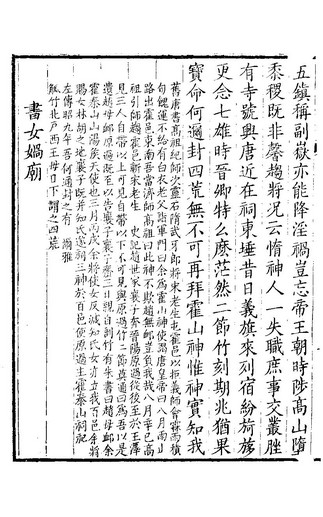 五鎮稱副嶽亦能降淫禍豈忘帝王朝時陟高山墮
黍稷既非馨趙將况云惰神人一失職庶事交叢脞
有寺號興唐近在祠東埵昔日義旗來列宿紛旖旎
更念七雄時晉卿特么麽茫然二節竹刻期兆猶果
寶命何邇封四荒無不可再拜霍山神惟神實知我
舊唐書髙祖紀師次靈石隋武牙郎將宋老生屯霍邑以拒義師會霖雨積
旬餽運不給有白衣老父詣軍門曰余為霍山神使謁唐皇帝曰八月雨止
路出霍邑東南吾當濟師高祖曰此神不欺趙無卹豈負我哉八月辛巳高
祖引師趨霍邑斬宋老生 史記趙世家襄子奔晉陽原過從後至於王澤
見三人自帶以上可見自帶以下不可見與原過竹二節莫通曰為吾以是
遺趙毋卹原過既至以告襄子襄子齊三日親自剖竹有朱書曰趙毋卹余
霍泰山山陽侯天使也三月丙戌余將使女反滅知氏女亦立我百邑余將
賜女林胡之地襄子既并知氏遂祠三神於百邑使原過主霍泰山祠祀
左傳昭九年吾何邇封之有 爾雅
觚竹北戶西王母日下謂之四荒
書女媧廟